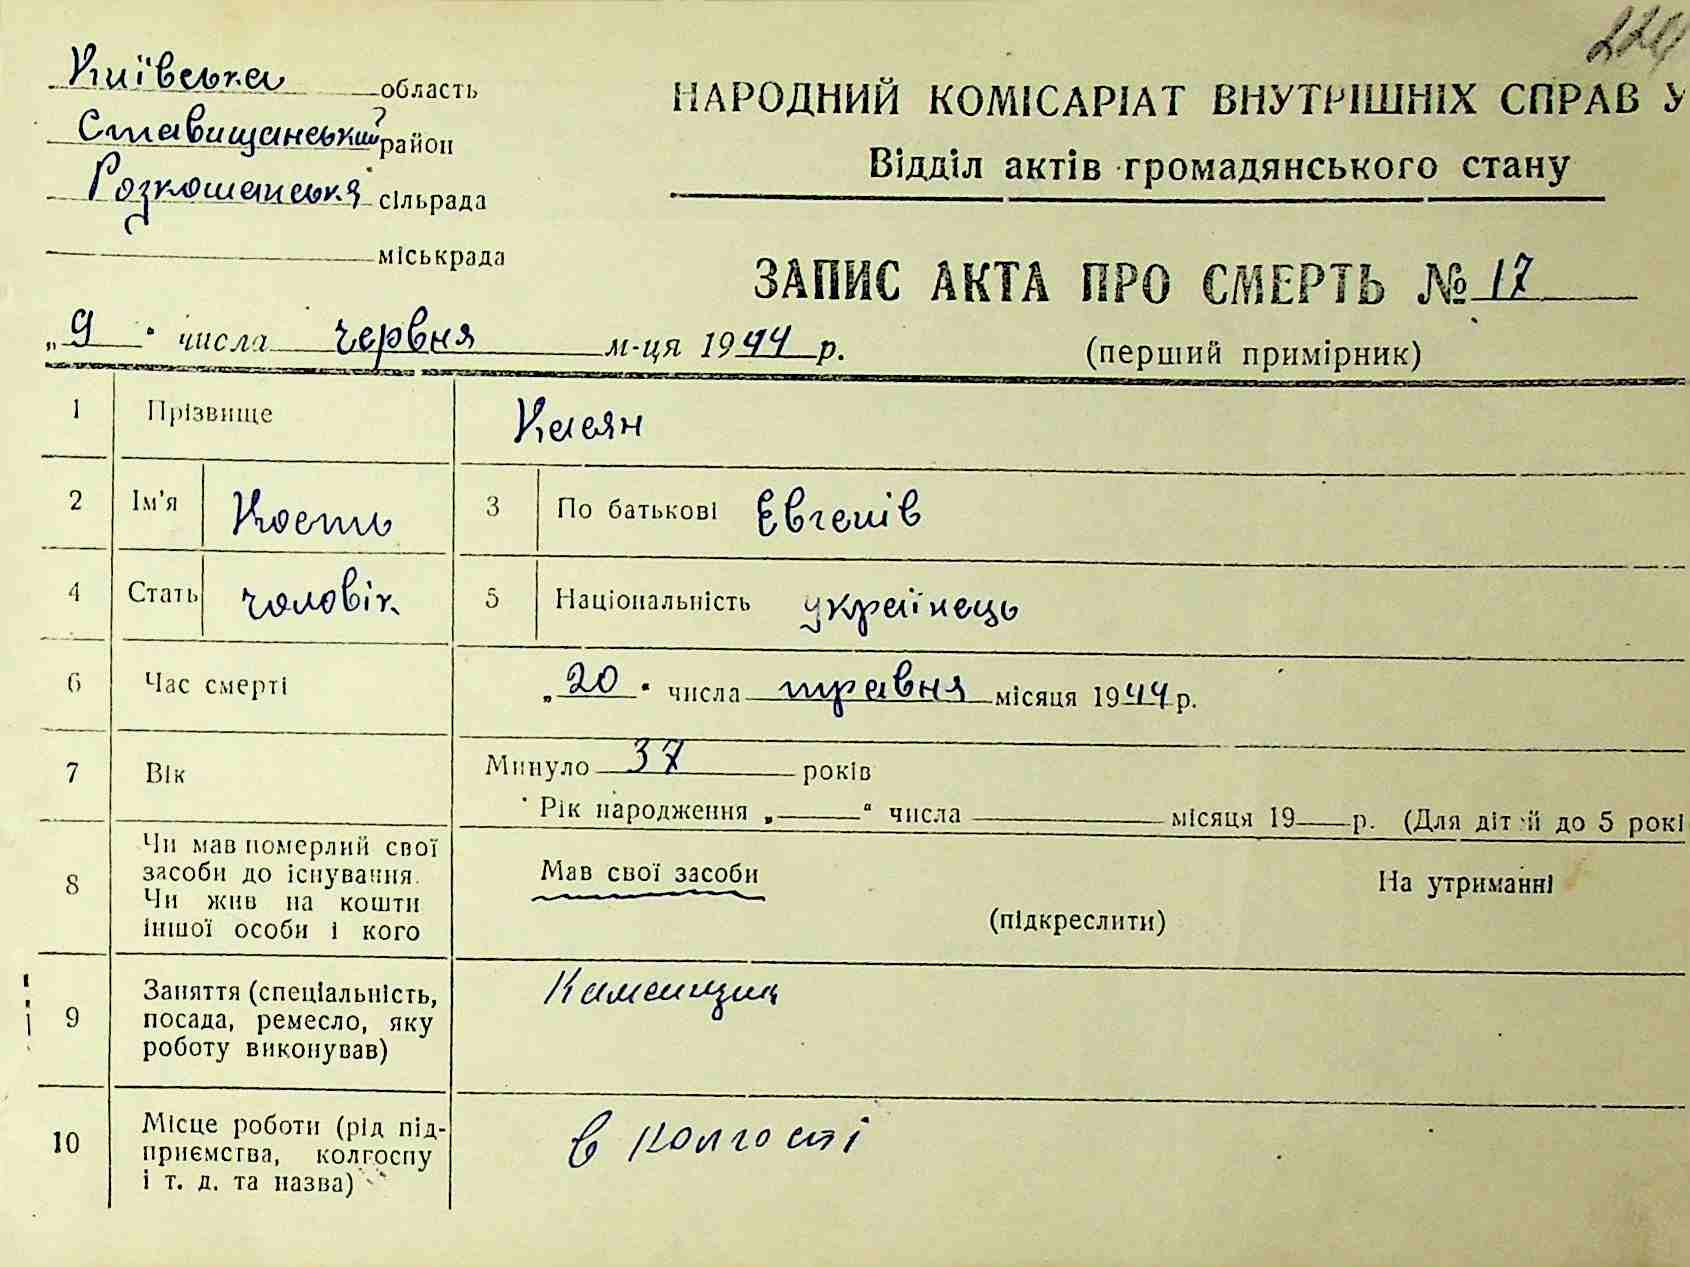 224
Київська область
Ставищанський район
Розкошетська сільрада
міськрада
НАРОДНИЙ КОМІСАРІАТ ВНУТРІШНІХ СПРАВ У
Відділ актів громадянського стану
ЗАПИС АКТА ПРО СМЕРТЬ № 17
„9“ числа червня м-ця 1944 р.
(перший примірник)
1 Прізвище Касян
2 Ім'я Кость 3 По батькові Евгенів
4 Стать чоловік 5 Національність українець
6 Час смерті „20“ числа травня місяця 1944 р.
7 Вік Минуло 37 років
Рік народження „ “ числа місяця 19 р. (Для дітей до 5 рокі
8 Чи мав померлий свої
засоби до існування.
Чи жив на кошти
іншої особи і кого
Мав свої засоби На утриманні
(підкреслити)
9 Заняття (спеціальність,
посада, ремесло, яку
роботу виконував)
Каменщик
10 Місце роботи (рід під-
приємства, колгоспу
і т. д. та назва)
в колгоспі